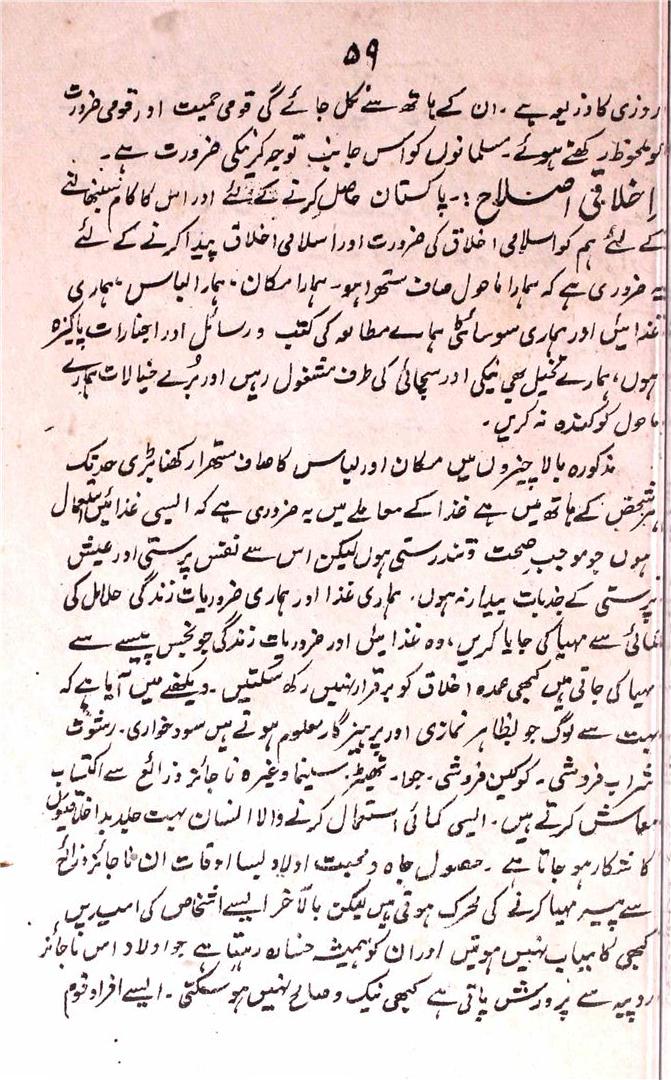 ۵۹
روزی کا ذریعہ ہے ۔ ان کے ہاتھ سے نکل جائے گی قومی حمیت اور قومی ضرورت
کو ملحوظ رکھتے ہوئے ۔ مسلمانوں کو اس جانب توجہ کرنیکی ضرورت ہے ۔
اخلاقی اصلاح :۔ پاکستان حاصل کرنے کے لئے اور اس کا کام سنبھالنے
کے لئے ہم کو اسلامی اخلاق کی ضرورت اور اسلامی اخلاق پیدا کرنے کے لئے
یہ ضروری ہے کہ ہمارا ماحول صاف ستھرا ہو ۔ ہمارا مکان ، ہمارا لباس ، ہماری
غذائیں اور ہماری سوسائٹی ہمارے مطالعہ کی کتب و رسائل اور اخبارات پاکیزہ
ہوں ، ہمارے تخیل بھی نیکی اور سچائی کی طرف مشغول رہیں اور بُرے خیالات ہمارے
ماحول کو گندہ نہ کریں ۔
مذکورہ بالا چیزوں میں مکان اور لباس کا صاف ستھرا رکھنا بڑی حد تک
ہر شخص کے ہاتھ میں ہے غذا کے معاملے میں یہ ضروری ہے کہ ایسی غذائیں استعمال
ہوں جو موجب صحت و تندرستی ہوں لیکن اس سے نفس پرستی اور عیش
پرستی کے جذبات بیدار نہ ہوں ۔ ہماری غذا اور ہماری ضروریات زندگی حلال کی
کمائی سے مہیا کی جایا کریں ، وہ غذائیں اور ضروریات زندگی جو نجس پیسے سے
مہیا کی جاتی ہیں کبھی عمدہ اخلاق کو برقرار نہیں رکھ سکتیں ۔ دیکھنے میں آیا ہے کہ
بہت سے لوگ جو بظاہر نمازی اور پرہیزگار معلوم ہوتے ہیں سود خواری ۔ رشوت
شراب فروشی ۔ کوکین فروشی ۔ جوا ۔ تھیٹر ۔ سینما وغیرہ ناجائز ذرائع سے اکتساب
معاش کرتے ہیں ۔ ایسی کمائی استعمال کرنے والا انسان بہت جلد بداخلاقیوں
کا شکار ہو جاتا ہے ۔ حصول جاہ و محبت اولاد بسا اوقات ان ناجائز ذرائع
سے پیسہ مہیا کرنے کی محرک ہوتی ہیں لیکن بالآخر ایسے اشخاص کی امیدیں
کبھی کامیاب نہیں ہوتیں اور ان کو ہمیشہ خسارہ رہتا ہے جو اولاد اس ناجائز
روپیہ سے پرورش پاتی ہے کبھی نیک و صالح نہیں ہو سکتی ۔ ایسے افراد قوم